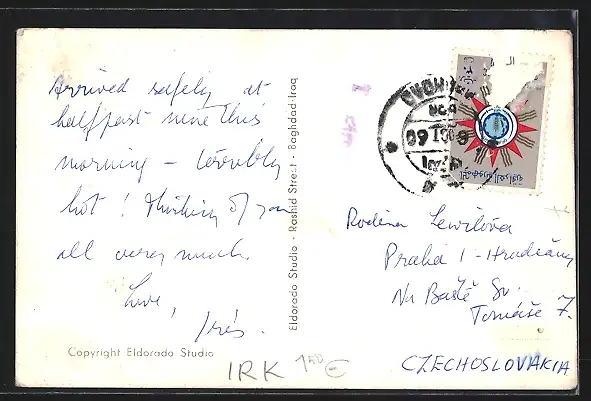 Arrived safely at
half past nine this
morning – terribly
hot! Thinking of you
all very much.
Love,
Iris.
Copyright Eldorado Studio
Eldorado Studio - Rashid Street - Baghdad-Iraq
Rodina Lewitova
Praha 1 - Hradčany
Na Baště Sv.
Tomáše 7.
CZECHOSLOVAKIA
IRK 150 €